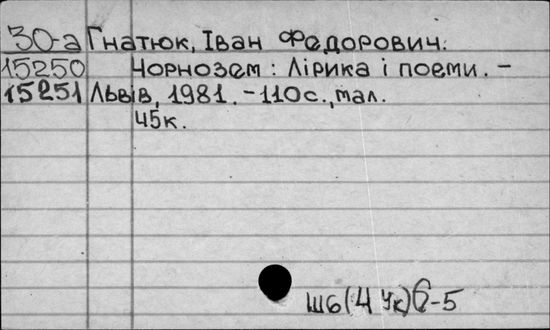 30-а Гнатюк, Іван Федорович.
15250 Чорнозем : Лірика і поеми. –
15251 Львів, 1981. – 110с., мал.
45к.
Ш6(4Ук)6-5